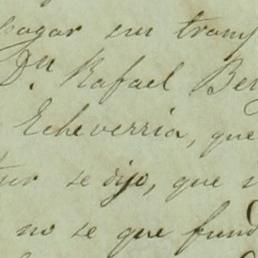 pagar sin tram
Dn. Rafael Ber
Echeverria, que
tur se dijo, que
no se que fund